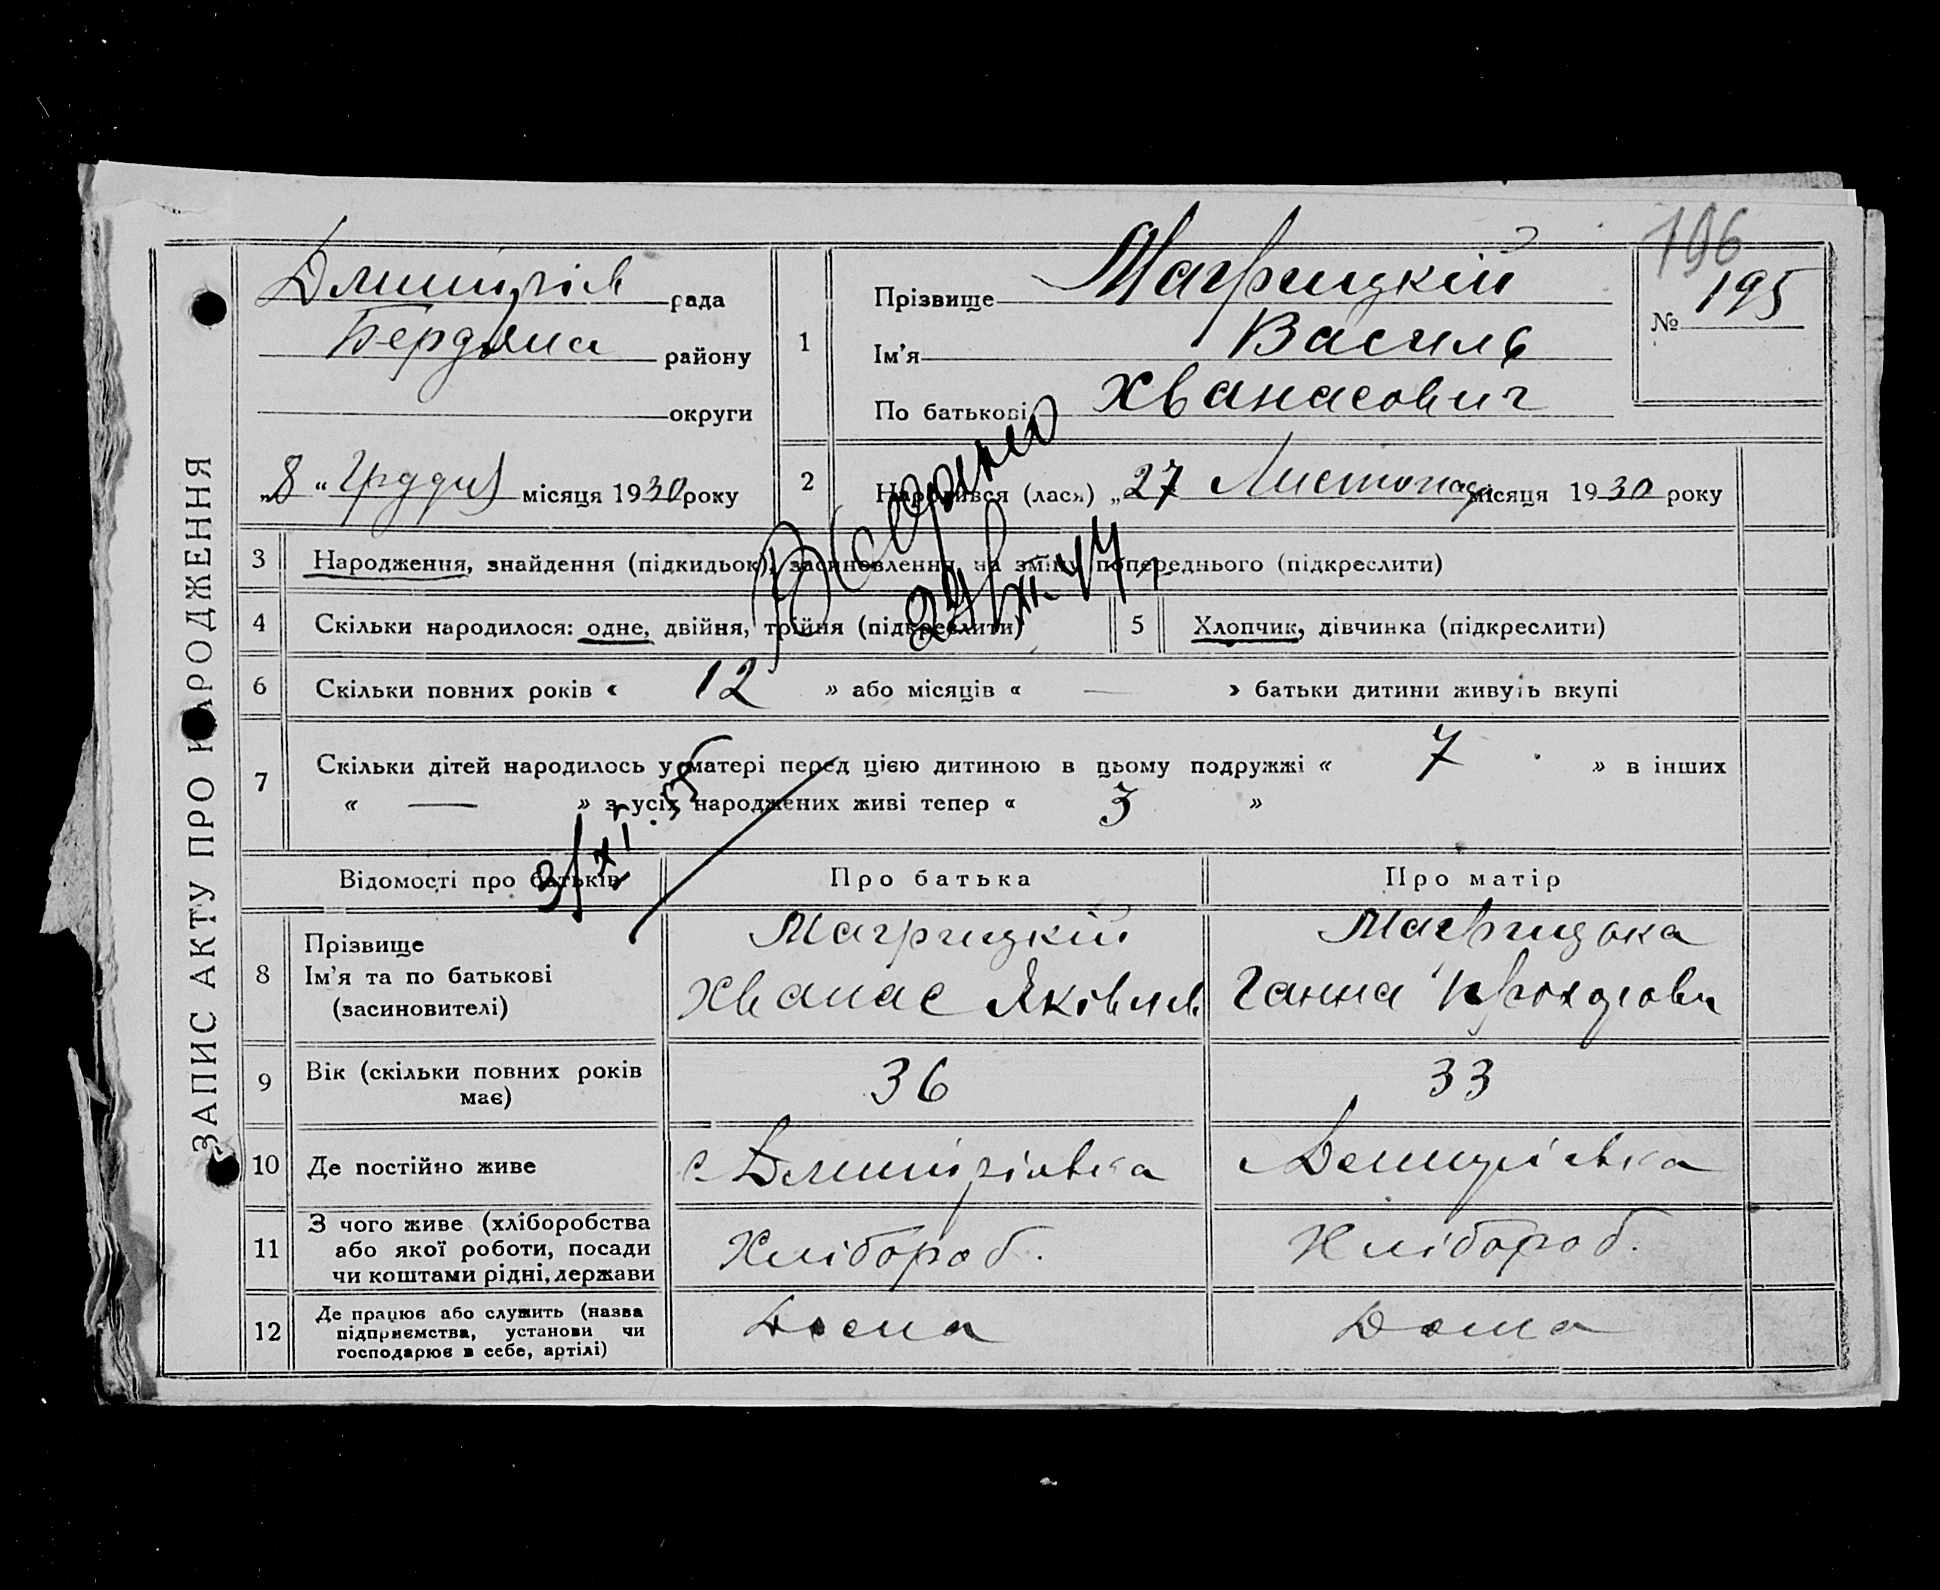 ЗАПИС АКТУ ПРО НАРОДЖЕННЯ
196
Дмитрів рада
Бердянс району
округи
„8“ Грудня місяця 1930 року
1
Прізвище Магрицкій
Ім'я Василь
По батькові Хванасович
№ 195
2
Народився (лася) „27 Листопад місяця 1930 року
3 Народження, знайдення (підкидьок), засиновлення на зміну попереднього (підкреслити)
4 Скільки народилося: одне, двійня, трійня (підкреслити)
5 Хлопчик, дівчинка (підкреслити)
6 Скільки повних років « 12 » або місяців « — » батьки дитини живуть вкупі
7 Скільки дітей народилось у матері перед цією дитиною в цьому подружжі « 7 » в інших
« — » з усіх народжених живі тепер « 3 »
Відомості про батьків
Про батька
Про матір
8
Прізвище
Ім'я та по батькові
(засиновителі)
Магрицкій
Хванас Яковлев
Магрицька
Ганна Прохорови
9 Вік (скільки повних років
має)
36
33
10 Де постійно живе
с Дмитрівка
с Дмитрівка
11
З чого живе (хліборобства
або якої роботи, посади
чи коштами рідні, держави
Хлібороб.
Хлібороб.
12
Де працює або служить (назва
підприємства, установи чи
господарює в себе, артілі)
Дома
Дома